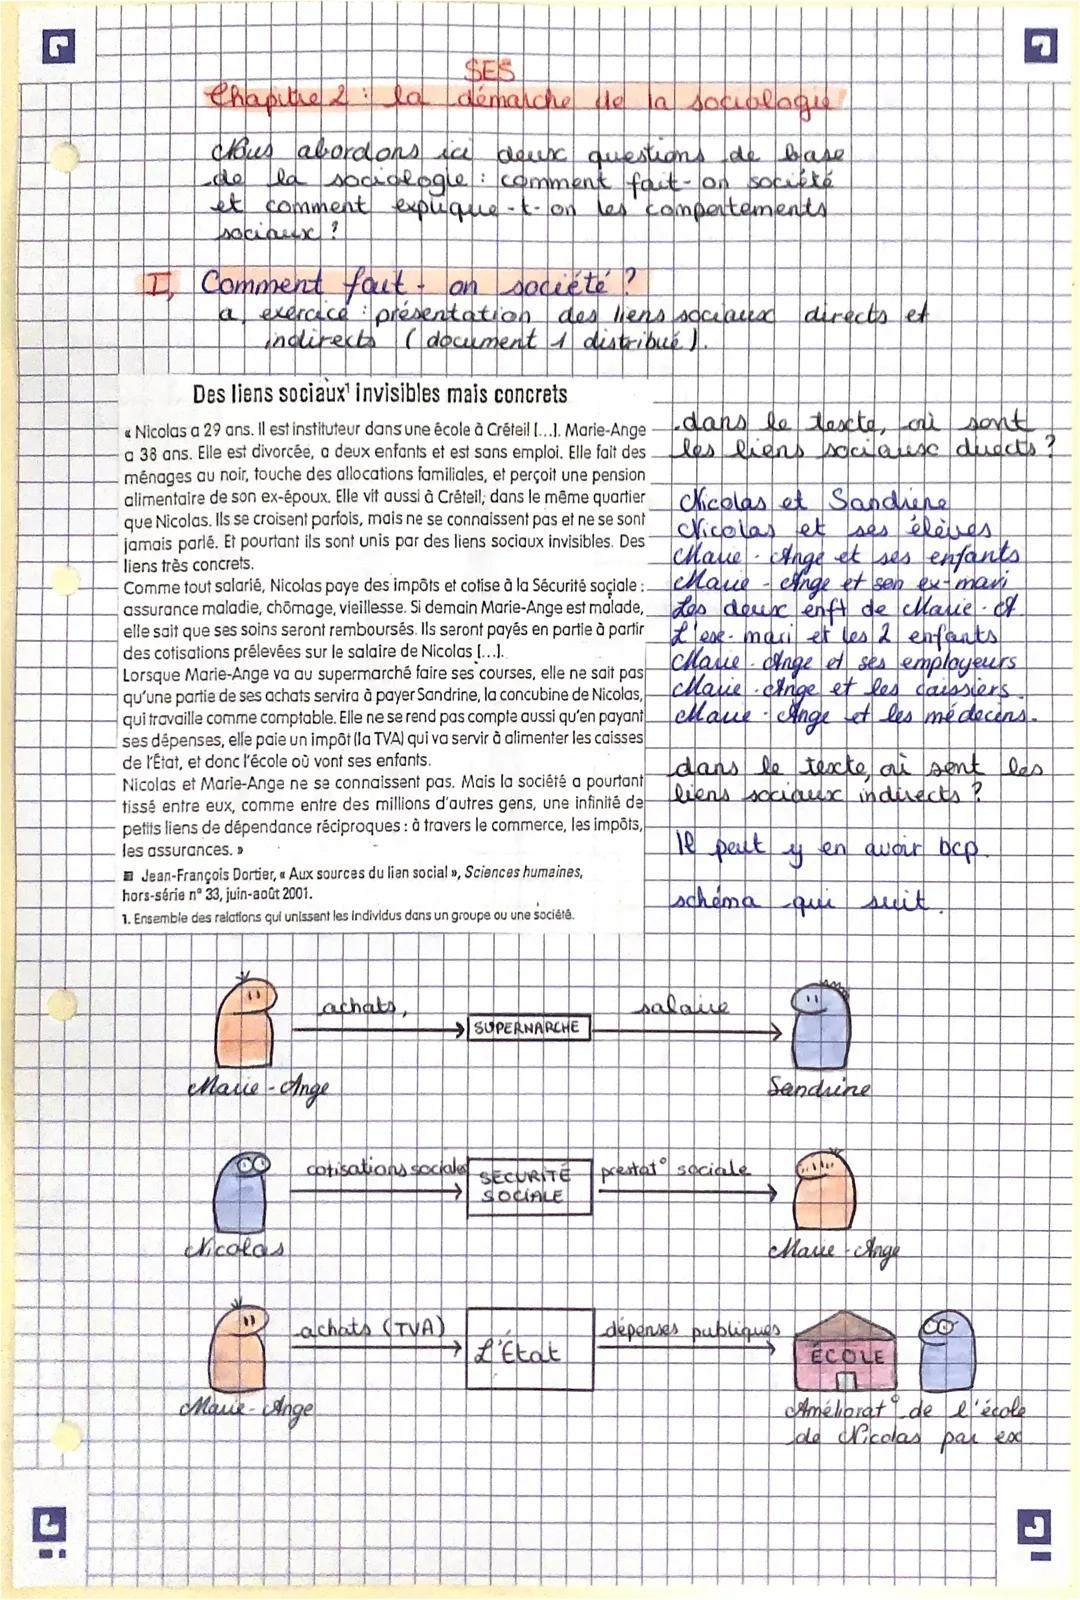 SES
Chapitre 2 : la démarche de la sociologie
Nous abordons ici deux questions de base
de la sociologie : comment fait-on société
et comment explique-t-on les comportements
sociaux ?
I, Comment fait-on société ?
a, exercice : présentation des liens sociaux directs et
indirects ( document 1 distribué ).
Des liens sociaux¹ invisibles mais concrets
« Nicolas a 29 ans. Il est instituteur dans une école à Créteil [...]. Marie-Ange
a 38 ans. Elle est divorcée, a deux enfants et est sans emploi. Elle fait des
ménages au noir, touche des allocations familiales, et perçoit une pension
alimentaire de son ex-époux. Elle vit aussi à Créteil, dans le même quartier
que Nicolas. Ils se croisent parfois, mais ne se connaissent pas et ne se sont
jamais parlé. Et pourtant ils sont unis par des liens sociaux invisibles. Des
liens très concrets.
Comme tout salarié, Nicolas paye des impôts et cotise à la Sécurité sociale :
assurance maladie, chômage, vieillesse. Si demain Marie-Ange est malade,
elle sait que ses soins seront remboursés. Ils seront payés en partie à partir
des cotisations prélevées sur le salaire de Nicolas [...].
Lorsque Marie-Ange va au supermarché faire ses courses, elle ne sait pas
qu'une partie de ses achats servira à payer Sandrine, la concubine de Nicolas,
qui travaille comme comptable. Elle ne se rend pas compte aussi qu'en payant
ses dépenses, elle paie un impôt (la TVA) qui va servir à alimenter les caisses
de l'État, et donc l'école où vont ses enfants.
Nicolas et Marie-Ange ne se connaissent pas. Mais la société a pourtant
tissé entre eux, comme entre des millions d'autres gens, une infinité de
petits liens de dépendance réciproques : à travers le commerce, les impôts,
les assurances. »
Jean-François Dortier, « Aux sources du lien social », Sciences humaines,
hors-série n° 33, juin-août 2001.
1. Ensemble des relations qui unissent les individus dans un groupe ou une société.
.dans le texte, où sont
les liens sociaux directs ?
Nicolas et Sandrine
Nicolas et ses élèves
Marie-Ange et ses enfants
Marie-Ange et son ex-mari
Les deux enft de Marie-A
L'ex-mari et les 2 enfants
Marie-Ange et ses employeurs
Marie-Ange et les caissiers.
Marie-Ange et les médecins.
.dans le texte, où sont les
liens sociaux indirects ?
Il peut y en avoir bcp.
schéma qui suit.
achats,
SUPERMARCHE
salaire
Marie-Ange
Sandrine
cotisations sociales
SÉCURITÉ
SOCIALE
prestat° sociale
Nicolas
Marie-Ange
achats (TVA)
L'État
dépenses publiques
ÉCOLE
Marie-Ange
Améliorat° de l'école
de Nicolas par ex